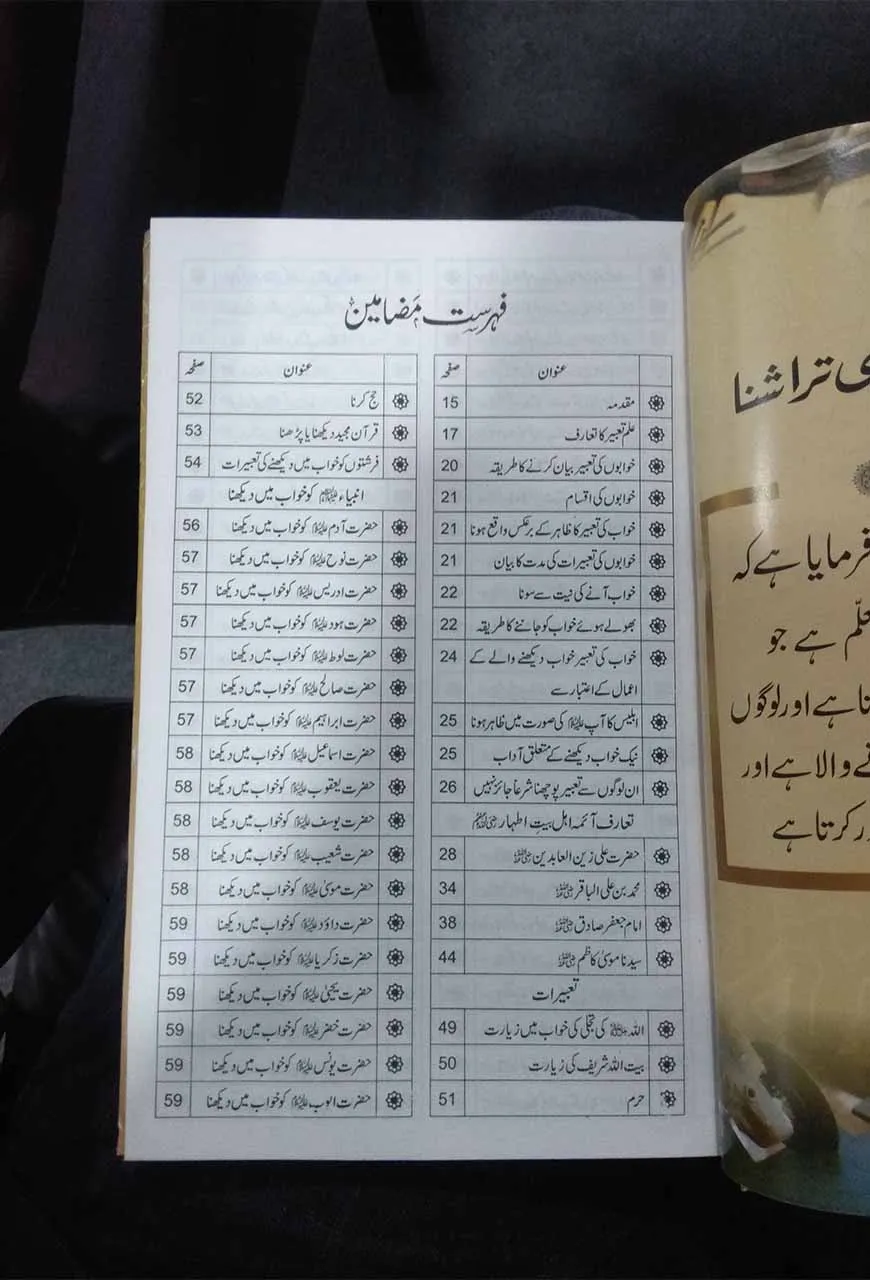 فہرست مضامین
عنوان صفحہ
مقدمہ 15
علم تعبیر کا تعارف 17
خوابوں کی تعبیر بیان کرنے کا طریقہ 20
خوابوں کی اقسام 21
خواب کی تعبیر کا ظاہر کے برعکس واقع ہونا 21
خوابوں کی تعبیرات کی مدت کا بیان 21
خواب آنے کی نیت سے سونا 22
بھولے ہوئے خواب کو جاننے کا طریقہ 22
خواب کی تعبیر خواب دیکھنے والے کے 24
اعمال کے اعتبار سے
ابلیس کا آپ ﷺ کی صورت میں ظاہر ہونا 25
نیک خواب دیکھنے کے متعلق آداب 25
ان لوگوں سے تعبیر پوچھنا شرعاً جائز نہیں 26
تعارف آئمہ اہل بیتِ اطہار
حضرت علی زین العابدین 28
محمد بن علی الباقر 34
امام جعفر صادق 38
سیدنا موسیٰ کاظم 44
تعبیرات
اللہ کی تجلی کی خواب میں زیارت 49
بیت اللہ شریف کی زیارت 50
حرم 51
عنوان صفحہ
حج کرنا 52
قرآن مجید دیکھنا یا پڑھنا 53
فرشتوں کو خواب میں دیکھنے کی تعبیرات 54
انبیاء کو خواب میں دیکھنا
حضرت آدم علیہ السلام کو خواب میں دیکھنا 56
حضرت نوح علیہ السلام کو خواب میں دیکھنا 57
حضرت ادریس علیہ السلام کو خواب میں دیکھنا 57
حضرت ہود علیہ السلام کو خواب میں دیکھنا 57
حضرت لوط علیہ السلام کو خواب میں دیکھنا 57
حضرت صالح علیہ السلام کو خواب میں دیکھنا 57
حضرت ابراہیم علیہ السلام کو خواب میں دیکھنا 57
حضرت اسماعیل علیہ السلام کو خواب میں دیکھنا 58
حضرت یعقوب علیہ السلام کو خواب میں دیکھنا 58
حضرت یوسف علیہ السلام کو خواب میں دیکھنا 58
حضرت شعیب علیہ السلام کو خواب میں دیکھنا 58
حضرت موسیٰ علیہ السلام کو خواب میں دیکھنا 58
حضرت داؤد علیہ السلام کو خواب میں دیکھنا 59
حضرت زکریا علیہ السلام کو خواب میں دیکھنا 59
حضرت یحییٰ علیہ السلام کو خواب میں دیکھنا 59
حضرت خضر علیہ السلام کو خواب میں دیکھنا 59
حضرت یونس علیہ السلام کو خواب میں دیکھنا 59
حضرت ایوب علیہ السلام کو خواب میں دیکھنا 59
ی تراشنا
فرمایا ہے کہ
ہے جو
ہے اور لوگوں
والا ہے اور
کرتا ہے